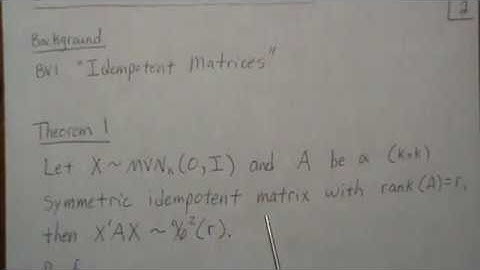 2
Background
BV1 "Idempotent Matrices"
Theorem 1
Let X ~ MVNₖ(0, I) and A be a (k×k)
symmetric idempotent matrix with rank(A)=r,
then X'AX ~ χ²(r).